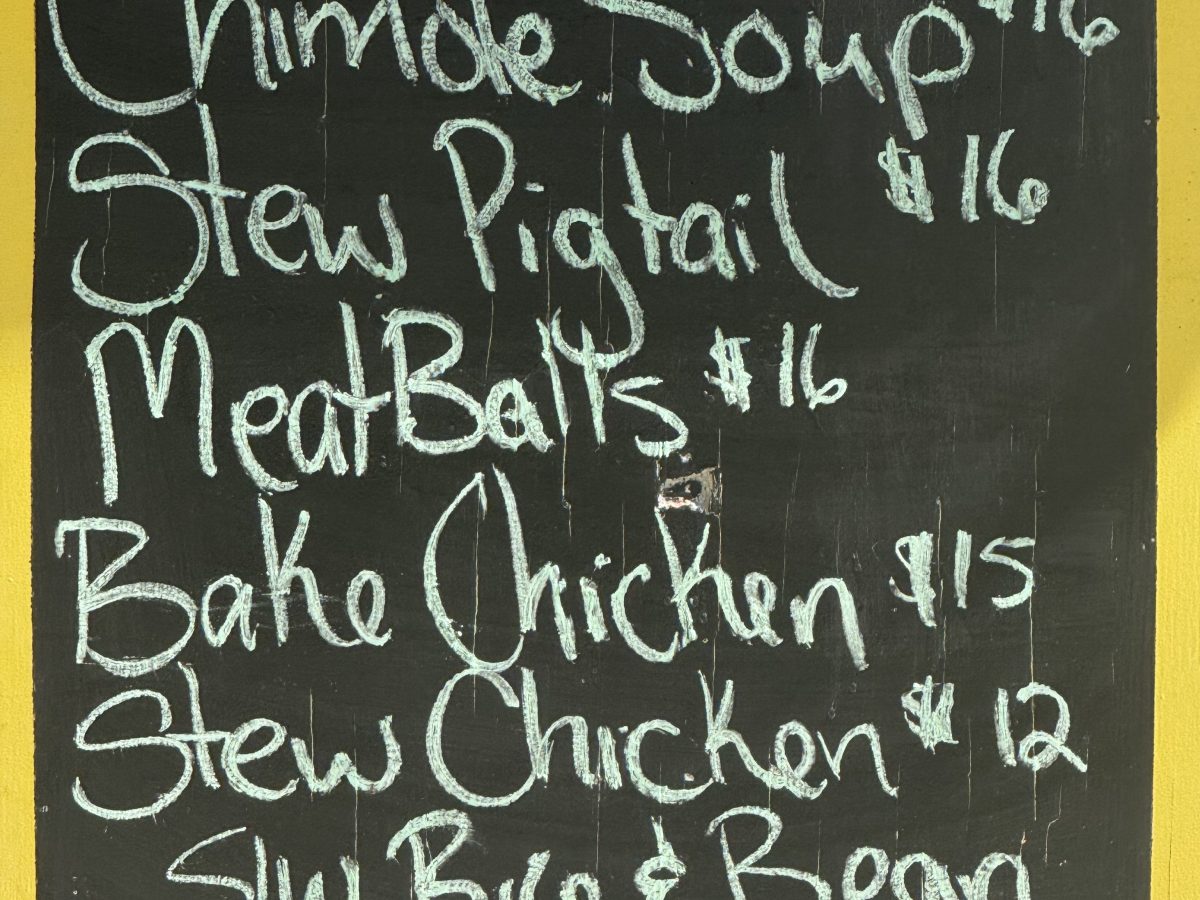 Chimole Soup $16
Stew Pigtail $16
MeatBalls $16
Bake Chicken $15
Stew Chicken $12
S/w Rice & Bean